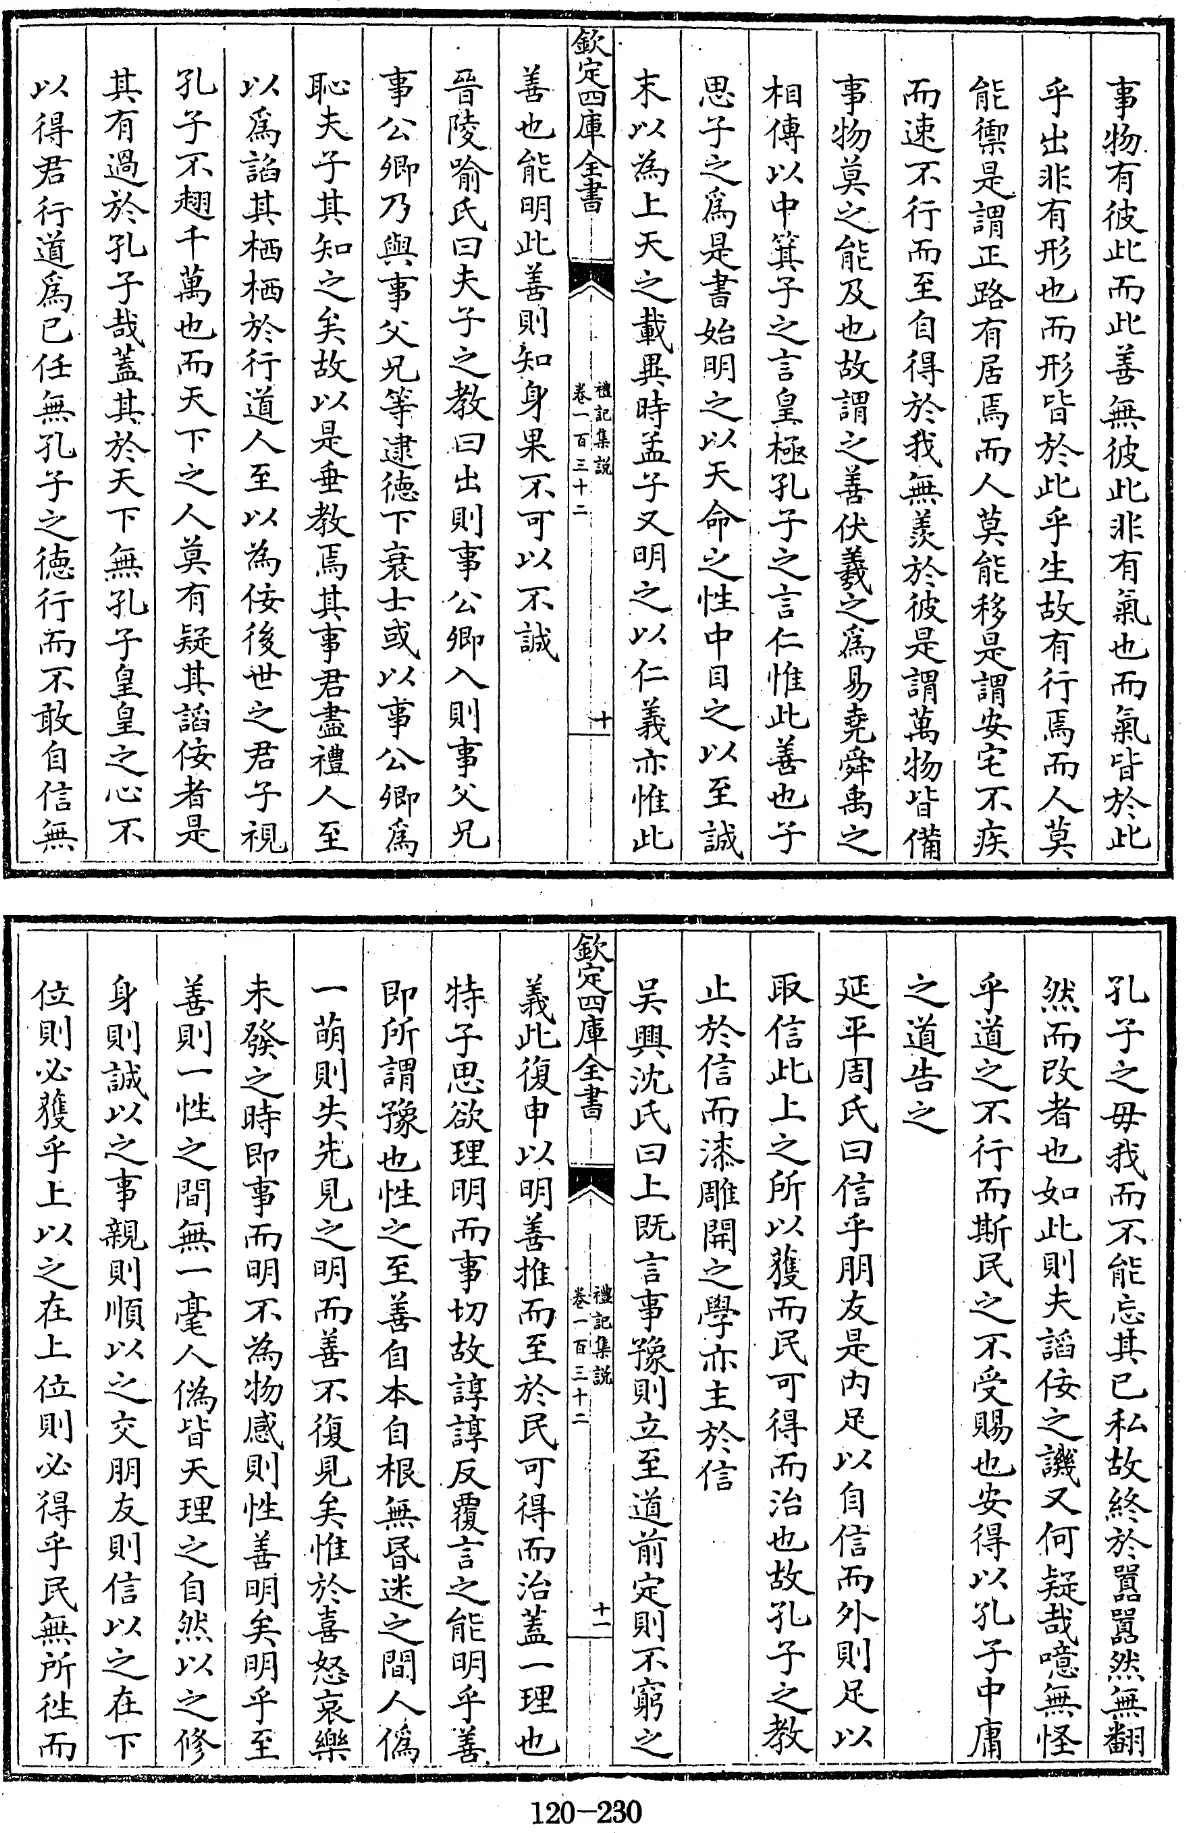 事物有彼此而此善無彼此非有氣也而氣皆於此
乎出非有形也而形皆於此乎生故有行焉而人莫
能禦是謂正路有居焉而人莫能移是謂安宅不疾
而速不行而至自得於我無羨於彼是謂萬物皆備
事物莫之能及也故謂之善伏羲之爲易堯舜禹之
相傳以中箕子之言皇極孔子之言仁惟此善也子
思子之爲是書始明之以天命之性中目之以至誠
末以為上天之載異時孟子又明之以仁義亦惟此
欽定四庫全書
禮記集説
卷一百三十二
十
善也能明此善則知身果不可以不誠
晉陵喻氏曰夫子之教曰出則事公卿入則事父兄
事公卿乃與事父兄等逮德下衰士或以事公卿爲
恥夫子其知之矣故以是垂教焉其事君盡禮人至
以爲諂其栖栖於行道人至以為佞後世之君子視
孔子不翅千萬也而天下之人莫有疑其諂佞者是
其有過於孔子哉蓋其於天下無孔子皇皇之心不
以得君行道爲已任無孔子之德行而不敢自信無
孔子之毋我而不能忘其已私故終於嚚嚚然無翻
然而改者也如此則夫諂佞之譏又何疑哉噫無怪
乎道之不行而斯民之不受賜也安得以孔子中庸
之道告之
延平周氏曰信乎朋友是内足以自信而外則足以
取信此上之所以獲而民可得而治也故孔子之教
止於信而漆雕開之學亦主於信
吴興沈氏曰上既言事豫則立至道前定則不窮之
欽定四庫全書
禮記集説
卷一百三十二
十一
義此復申以明善推而至於民可得而治蓋一理也
特子思欲理明而事切故諄諄反覆言之能明乎善
即所謂豫也性之至善自本自根無昏迷之間人僞
一萌則失先見之明而善不復見矣惟於喜怒哀樂
未發之時即事而明不為物感則性善明矣明乎至
善則一性之間無一毫人僞皆天理之自然以之修
身則誠以之事親則順以之交朋友則信以之在下
位則必獲乎上以之在上位則必得乎民無所徃而
120-230